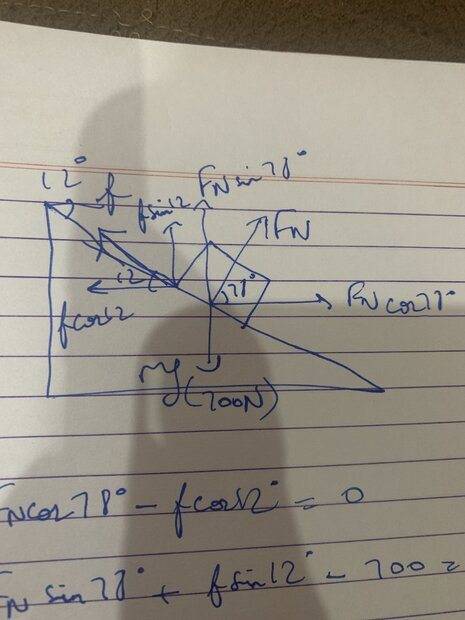 12°
f
f sin 12
F_N sin 78°
F_N
12
78°
f cos 12
F_N cos 78°
mg (700N)
F_N cos 78° - f cos 12° = 0
F_N sin 78° + f sin 12° - 700 =